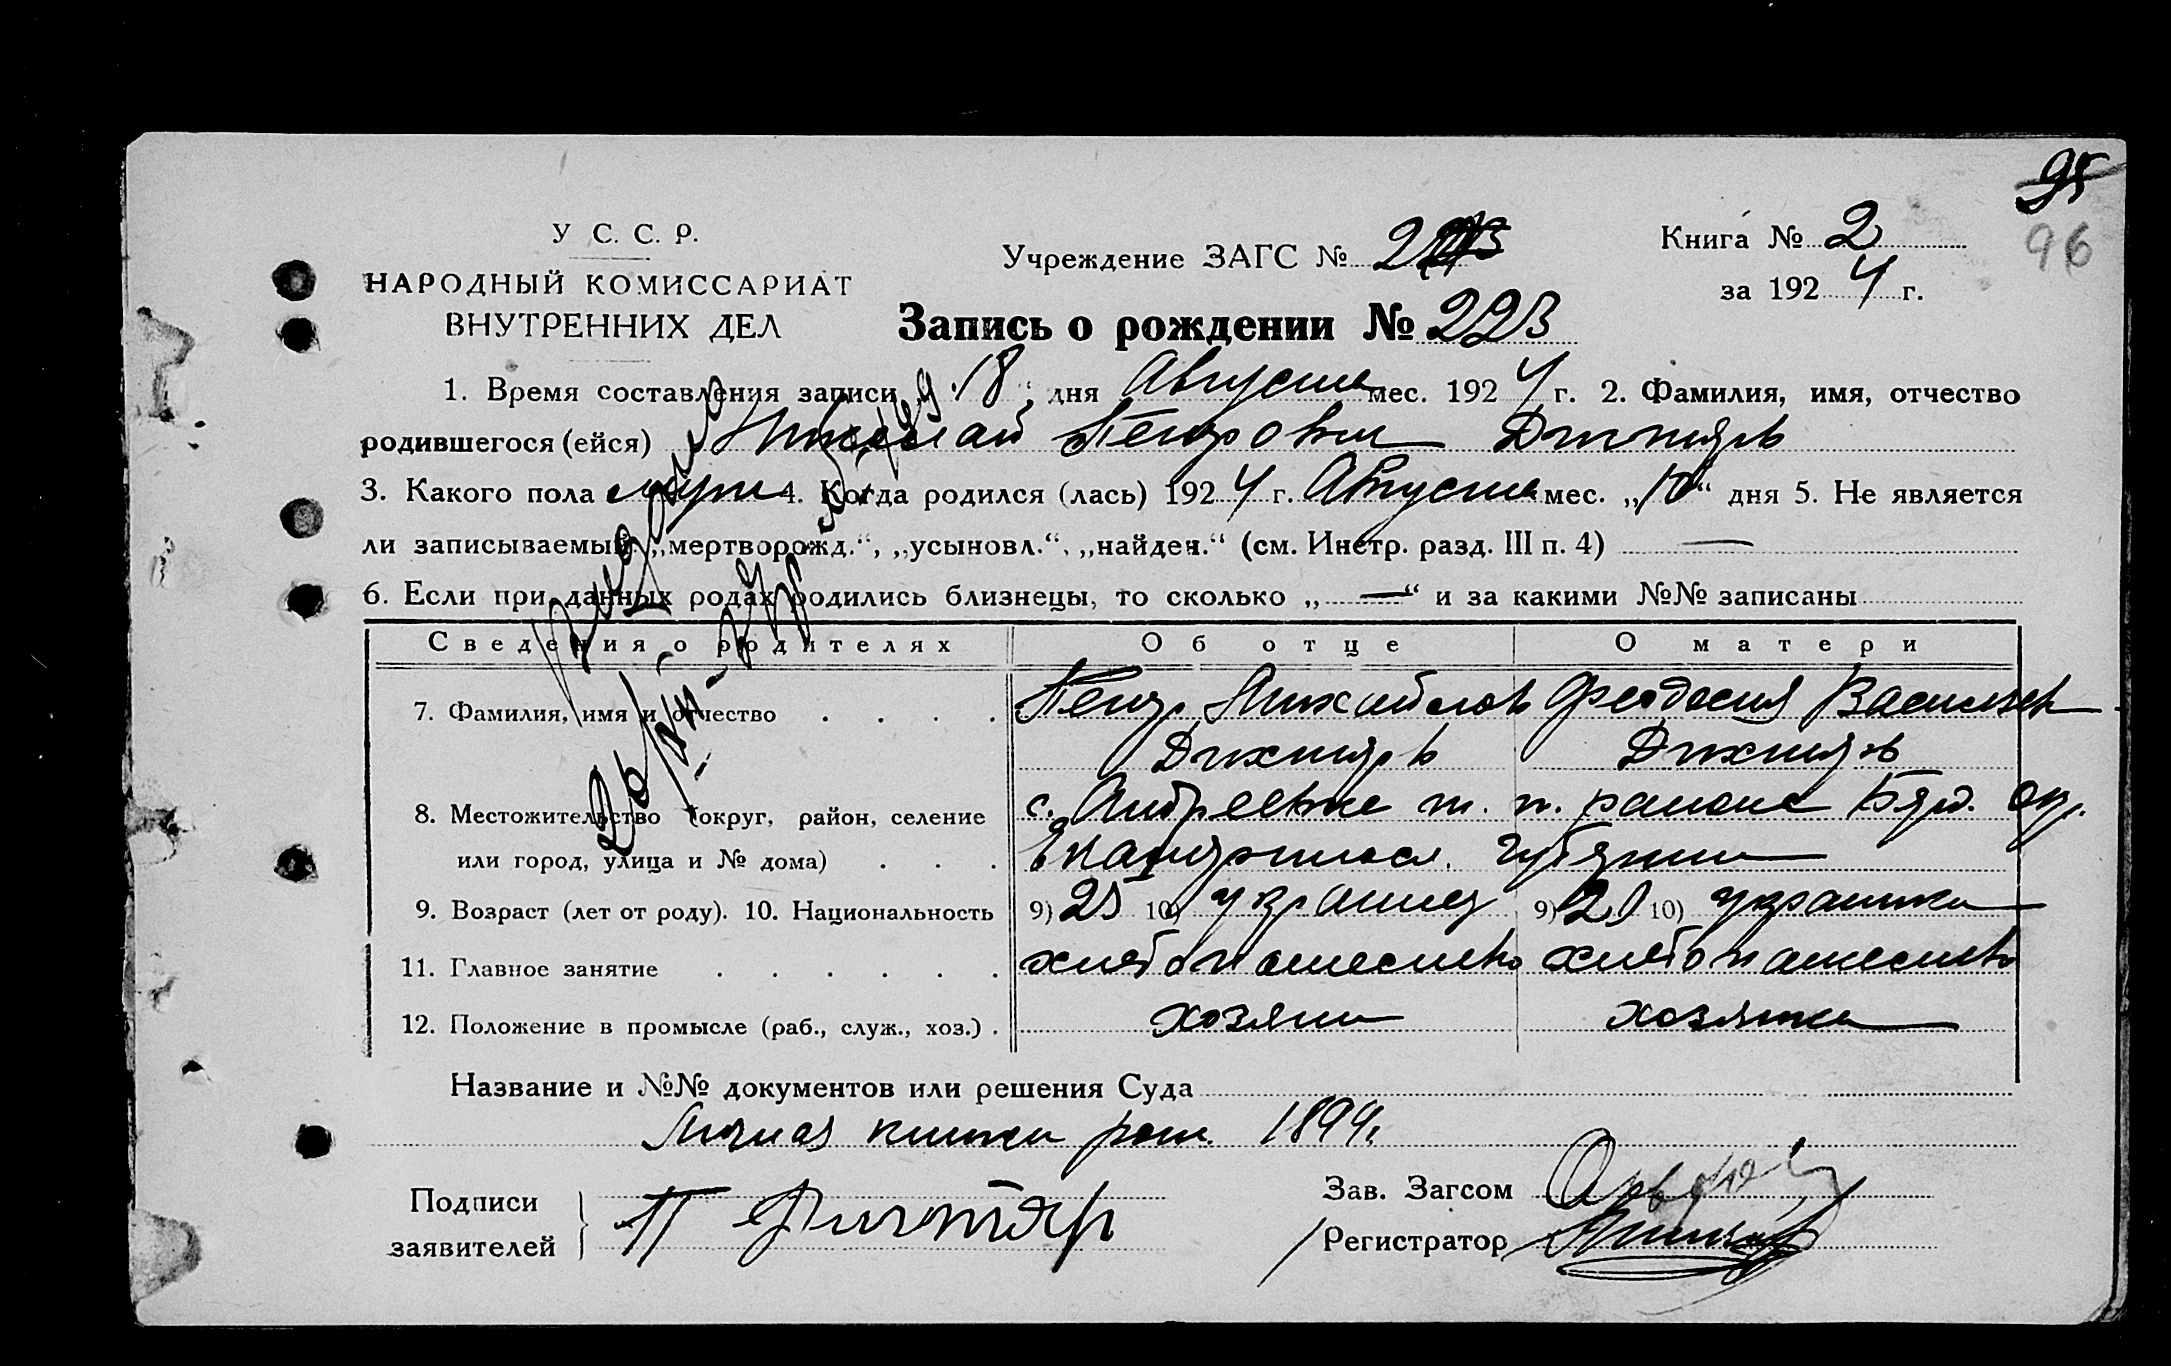 95
96
У С. С. Р.
НАРОДНЫЙ КОМИССАРИАТ
ВНУТРЕННИХ ДЕЛ
Учреждение ЗАГС №
Книга № 2
за 1924 г.
Запись о рождении № 223
1. Время составления записи „18“ дня Августа мес. 1924 г. 2. Фамилия, имя, отчество
родившегося (ейся) Николай Петрович
3. Какого пола муж 4. Когда родился (лась) 1924 г. Августа мес. „10“ дня 5. Не является
ли записываемый: „мертворожд.“, „усыновл.“, „найден.“ (см. Инстр. разд. III п. 4) —
6. Если при данных родах родились близнецы, то сколько „—“ и за какими №№ записаны
Сведения о родителях Об отце О матери
7. Фамилия, имя и отчество . . . . Петр Михайлов Феодосия Васильев
Дихтярь Дихтярь
8. Местожительство (округ, район, селение с. Андреевка т. п. района Берд. окр.
или город, улица и № дома) . . . Екатериносл. губернии
9. Возраст (лет от роду). 10. Национальность 9) 25 10) украинец 9) 21 10) украинка
11. Главное занятие . . . . . . хлебопашество хлебопашество
12. Положение в промысле (раб., служ., хоз.) . хозяин хозяйка
Название и №№ документов или решения Суда
Личная книжка 1899.
Подписи
заявителей
П Дихтярь
Зав. Загсом
Регистратор